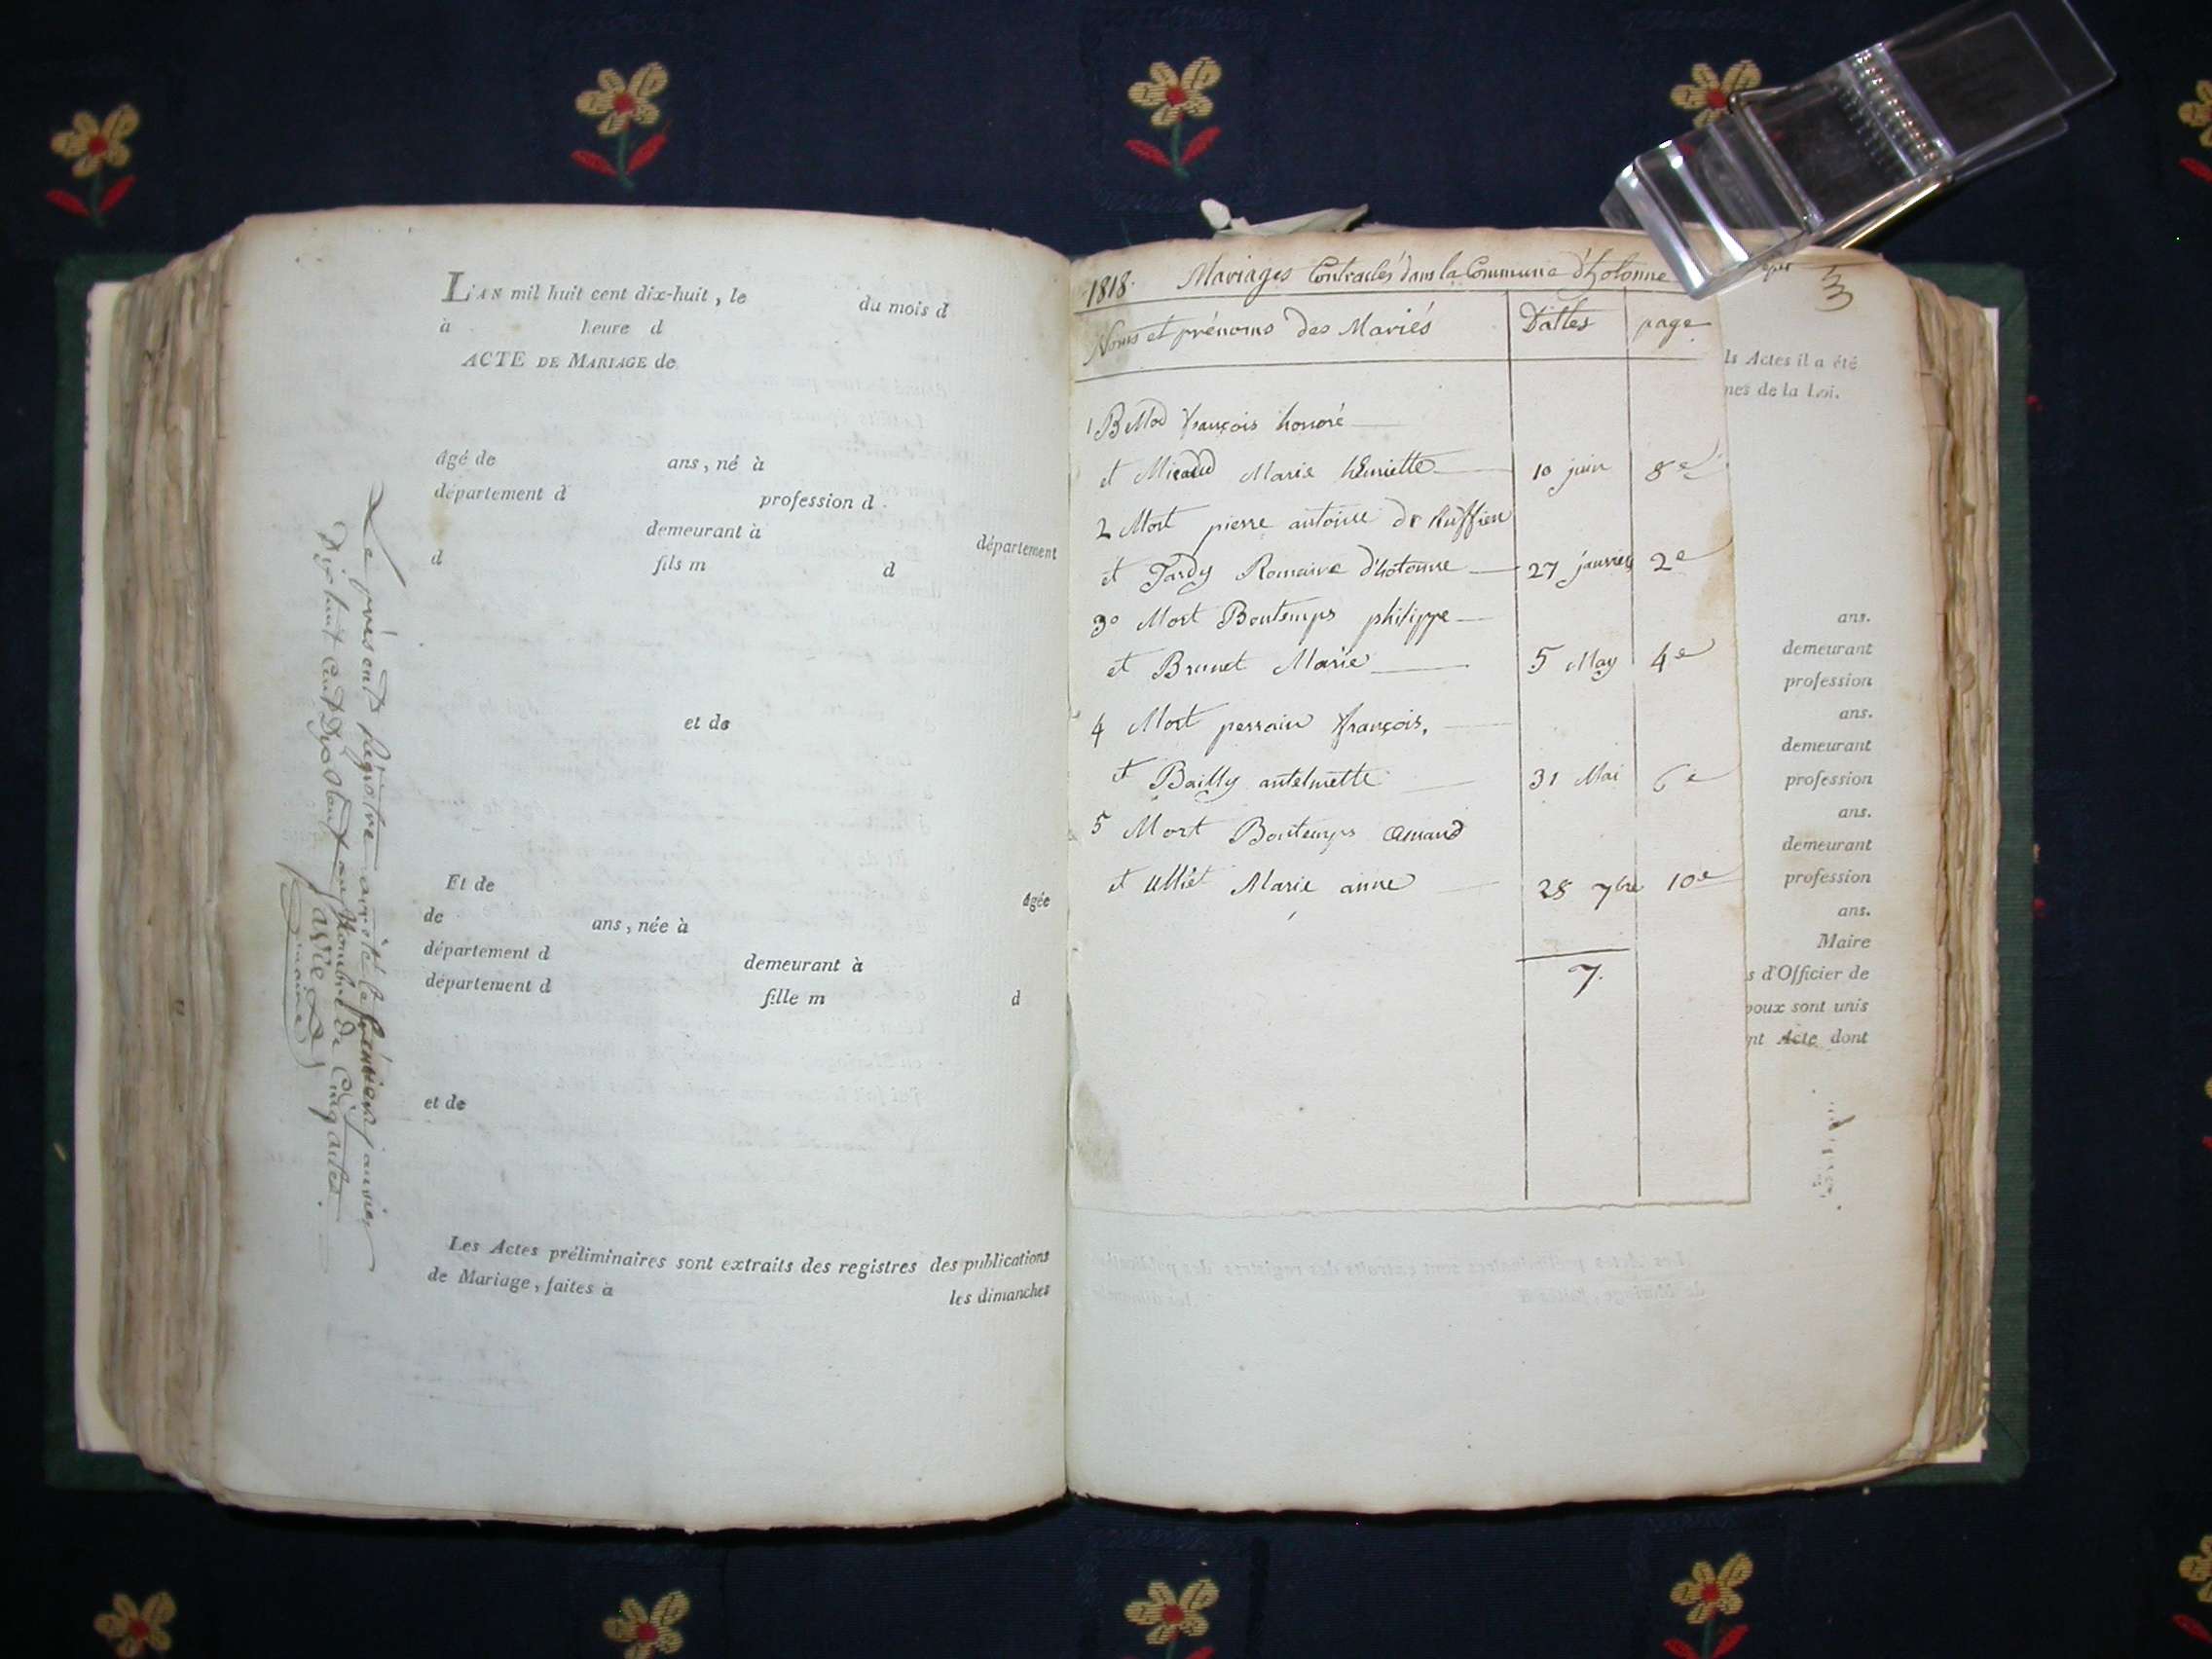 L'AN mil huit cent dix-huit, le du mois d
à heure d
ACTE DE MARIAGE de
âgé de ans, né à
département d profession d
demeurant à département
d fils m d
et de
Et de âgée
de ans, née à
département d demeurant à
département d fille m d
et de
Les Actes préliminaires sont extraits des registres des publications
de Mariage, faites à les dimanches
Le présent Registre arrêté le premier janvier
Dix huit Cent Dix Neuf au Nombre de Cinq actes
maire
1818. Mariages Contractés dans la Commune d'hotonne
Noms et prénoms des Mariés Dattes page
1 Bellod françois honoré
et Micaud Marie henriette 10 juin 8e
2 Mort pierre antoine de Ruffieu
et Tardy Romaine d'hotonne 27 janvier 2e
3o Mort Bontemps philippe
et Brunet Marie 5 May 4e
4 Mort perrain françois,
et Bailly antelmette 31 Mai 6e
5 Mort Bontemps amand
et ulliet Marie anne 28 7bre 10e
7.
3
ls Actes il a été
mes de la Loi.
ans.
demeurant
profession
ans.
demeurant
profession
ans.
demeurant
profession
ans.
Maire
s d'Officier de
poux sont unis
nt Acte dont